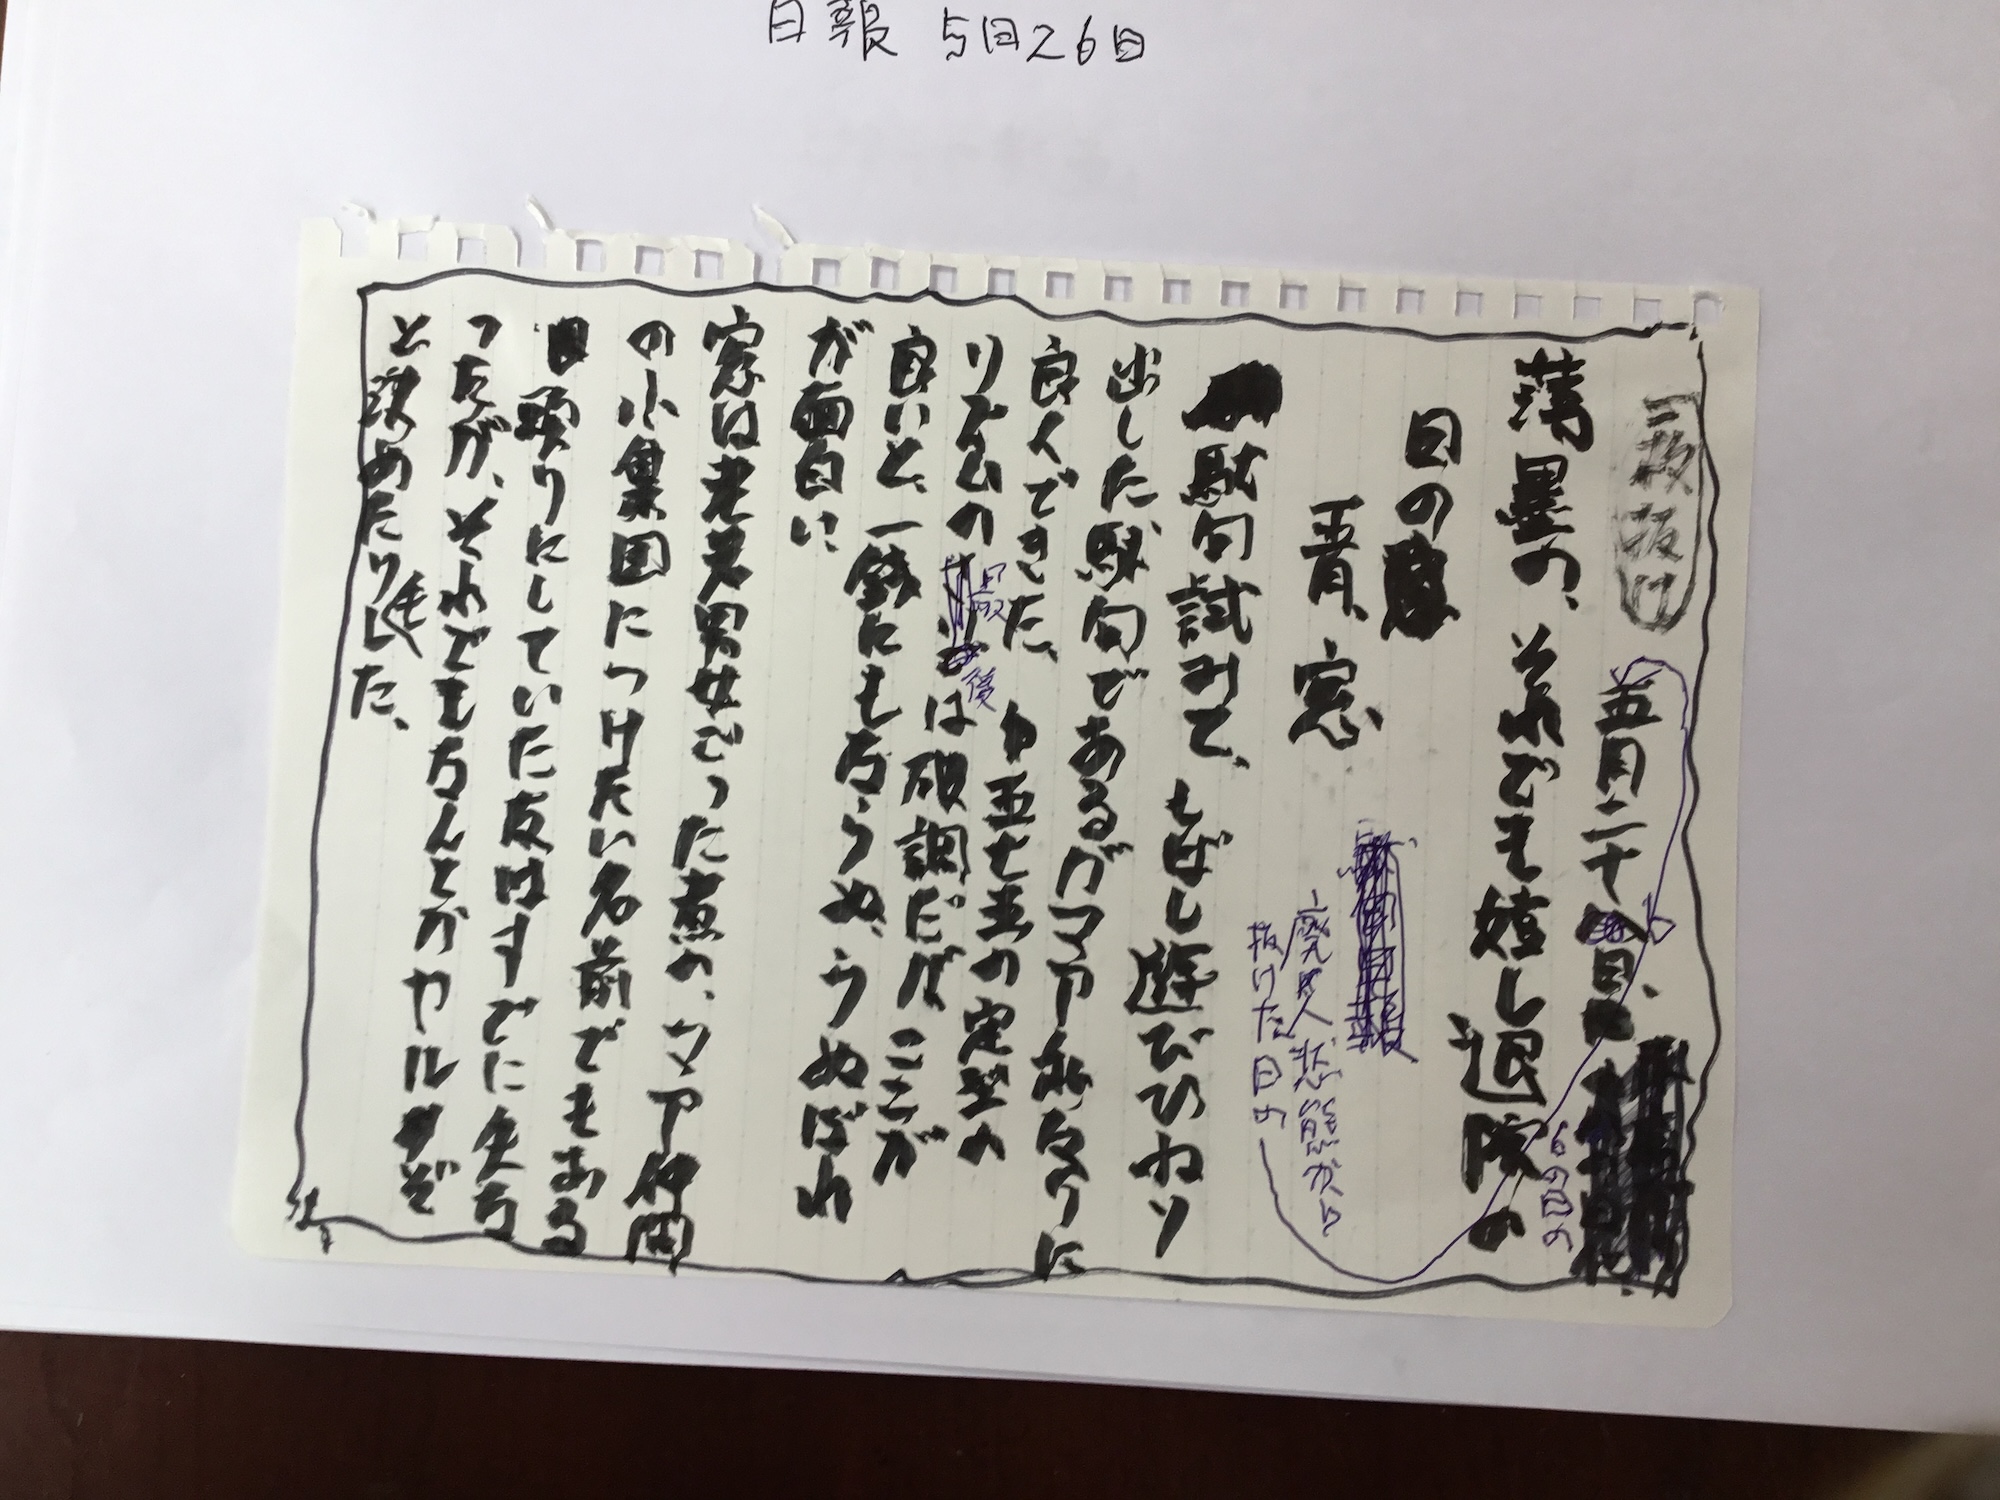 日報 5月26日
二抜抜け
五月二十八日、
6の日の
薄墨の、それでも嬉し退院の
日の
青、窓
廃人 悲惨から
抜けた日の
駄句試みて、しばし遊びひねり
出した駄句であるがマアー私なりに
良くできた、中五七五の定型の
リズムの
最後
は破調だが、ここが
良いと、一銭にもならぬ、うぬぼれ
が面白い
窓は老若男女だった煮の、マアー仲間
の小集団につけたい名前でもある
頼りにしていた友はすでに失なっ
ったが、それでもなんとかヤルゾ
と決めたりした、